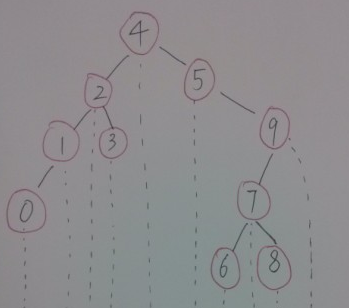 4
2 5
1 3 9
0 7
6 8